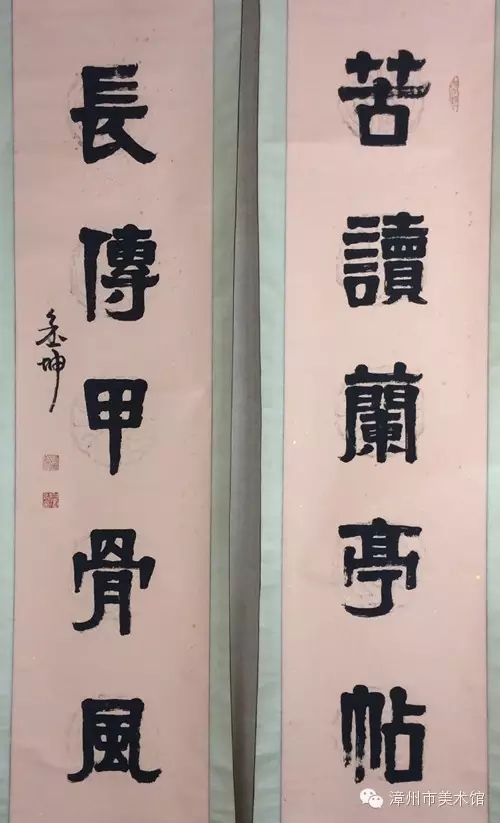 苦讀蘭亭帖
長傳甲骨風
漳州市美术馆